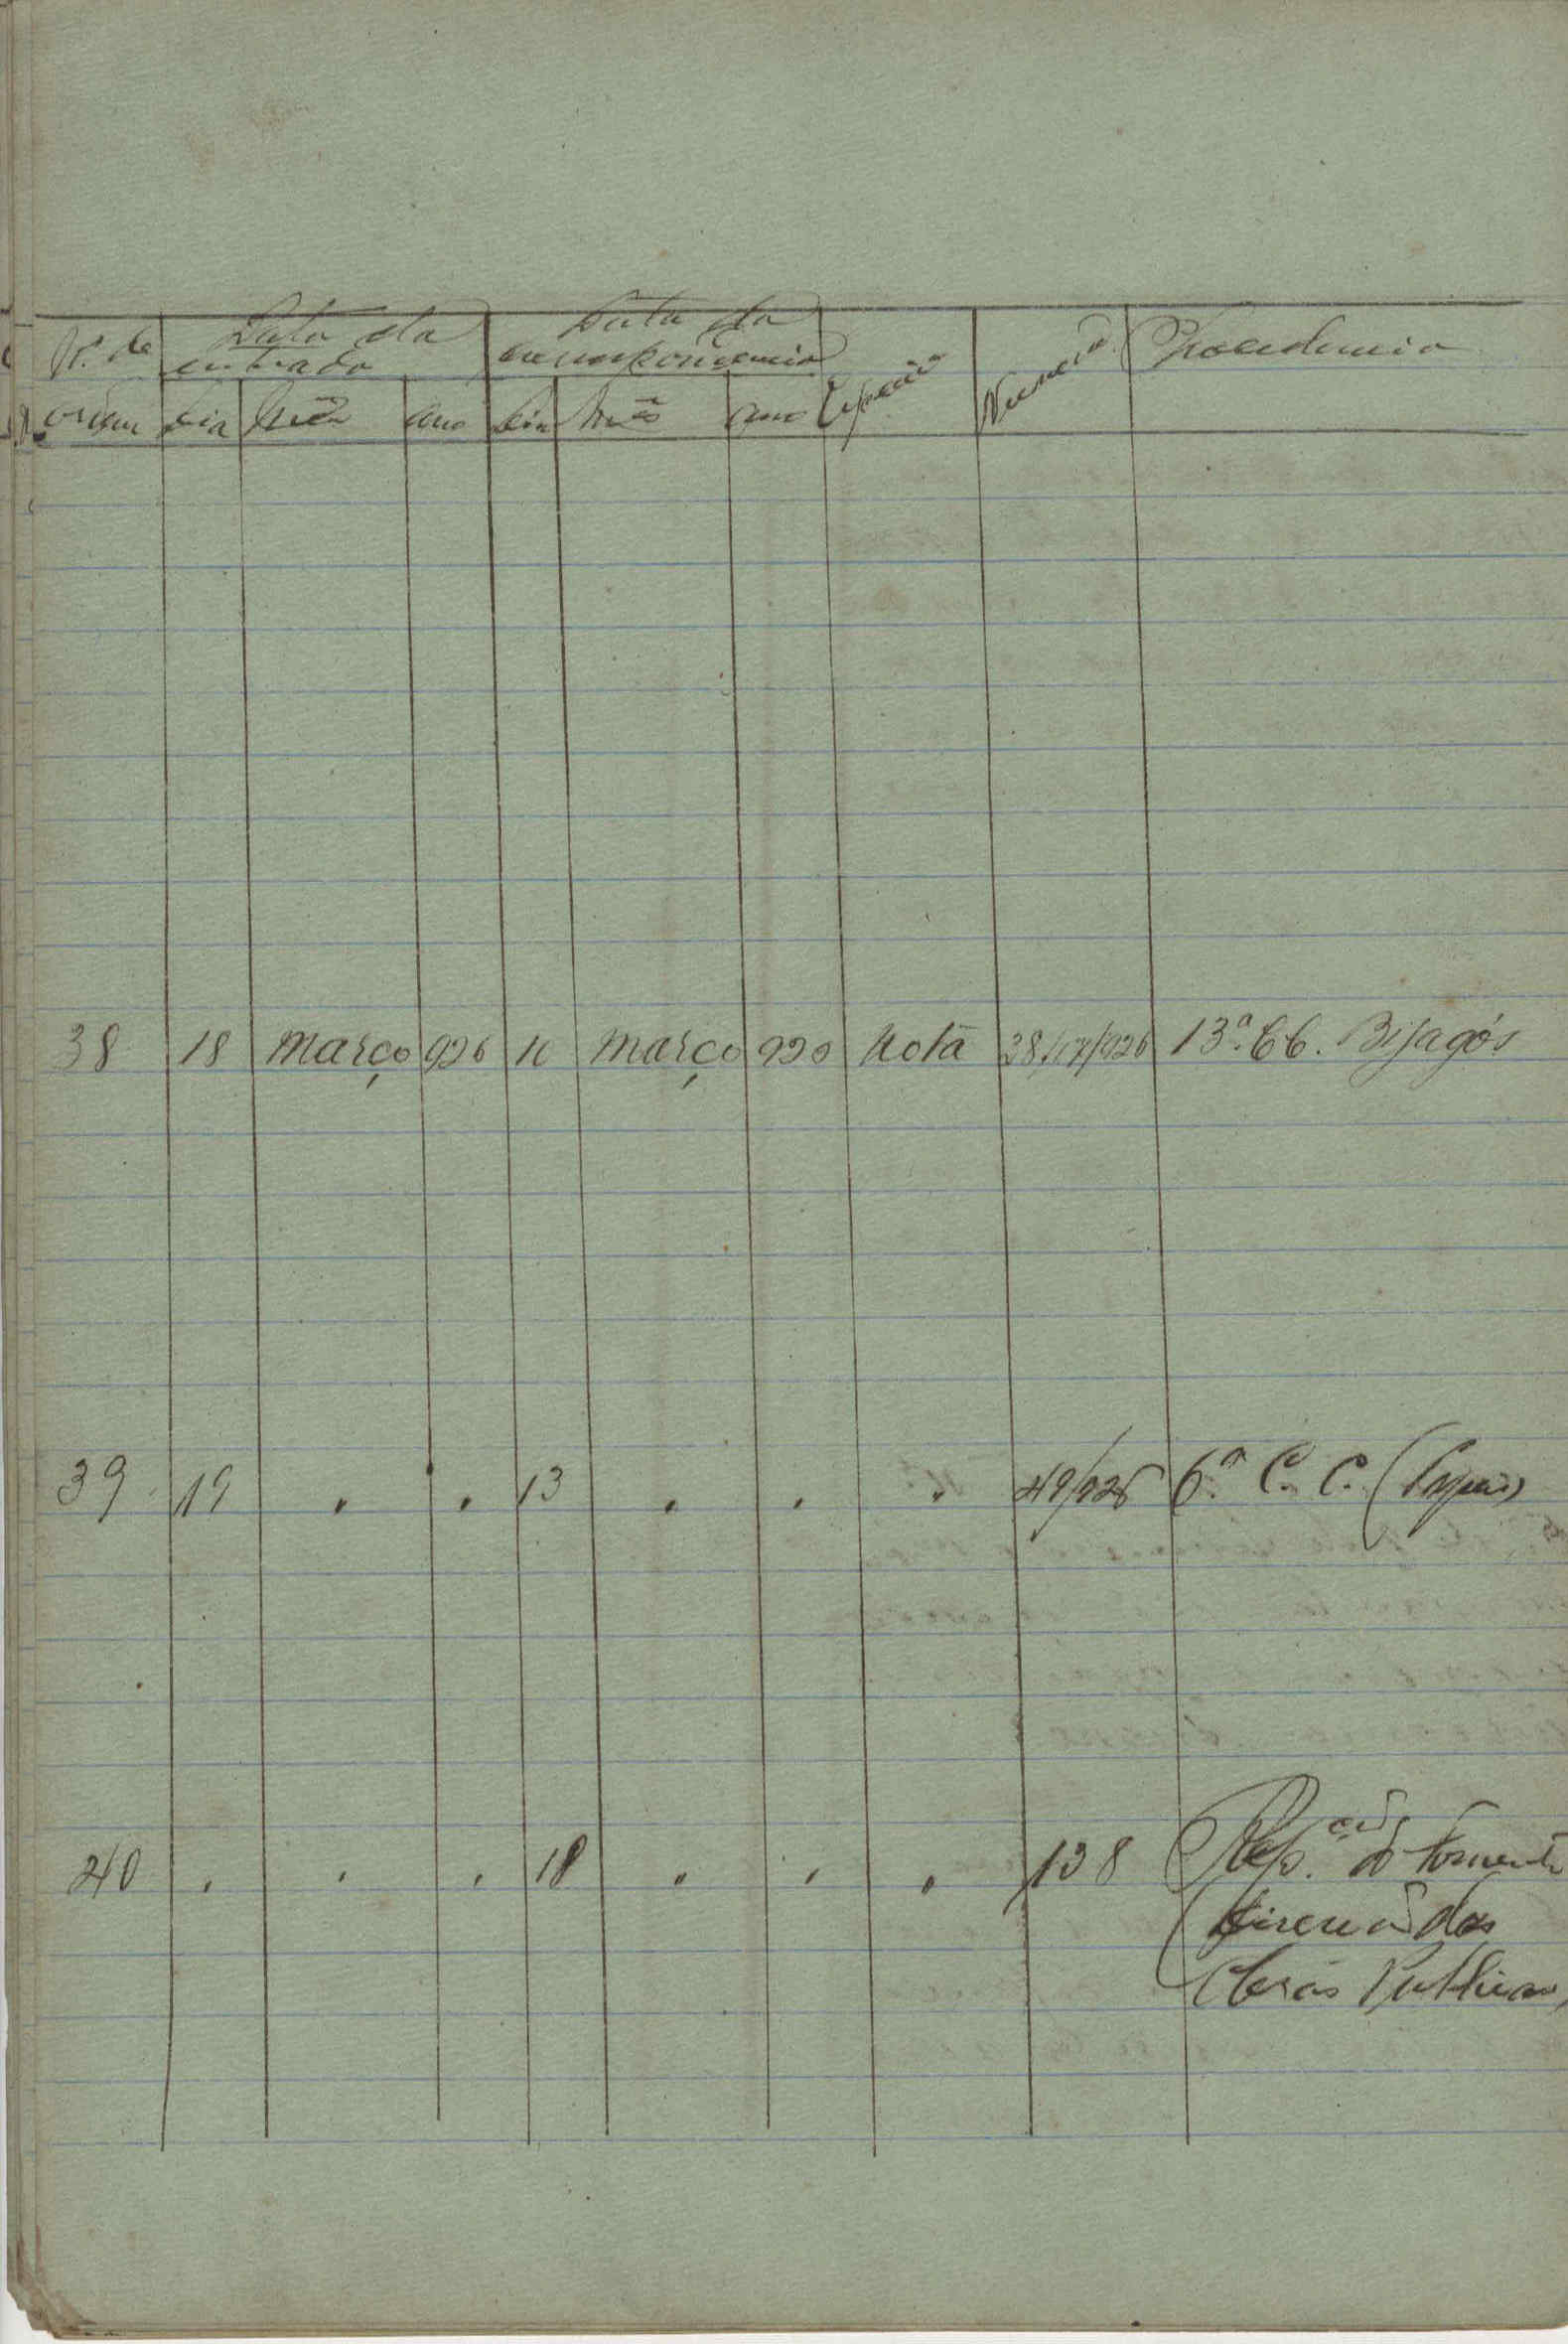 Nº. de Data da Data da
ordem entrada correspondencia Especie Numero Procedencia
dia mês ano dia mês ano
38 18 Março 926 10 Março 920 Nota 28/107/926 13ª. CC. Bijagós
39 19 . . 13 . . . 49/926 6ª. C. C. (
40 . . . 18 . . . 138 Repªᵐ do Fomento
(Direcção das
Obras Publicas)